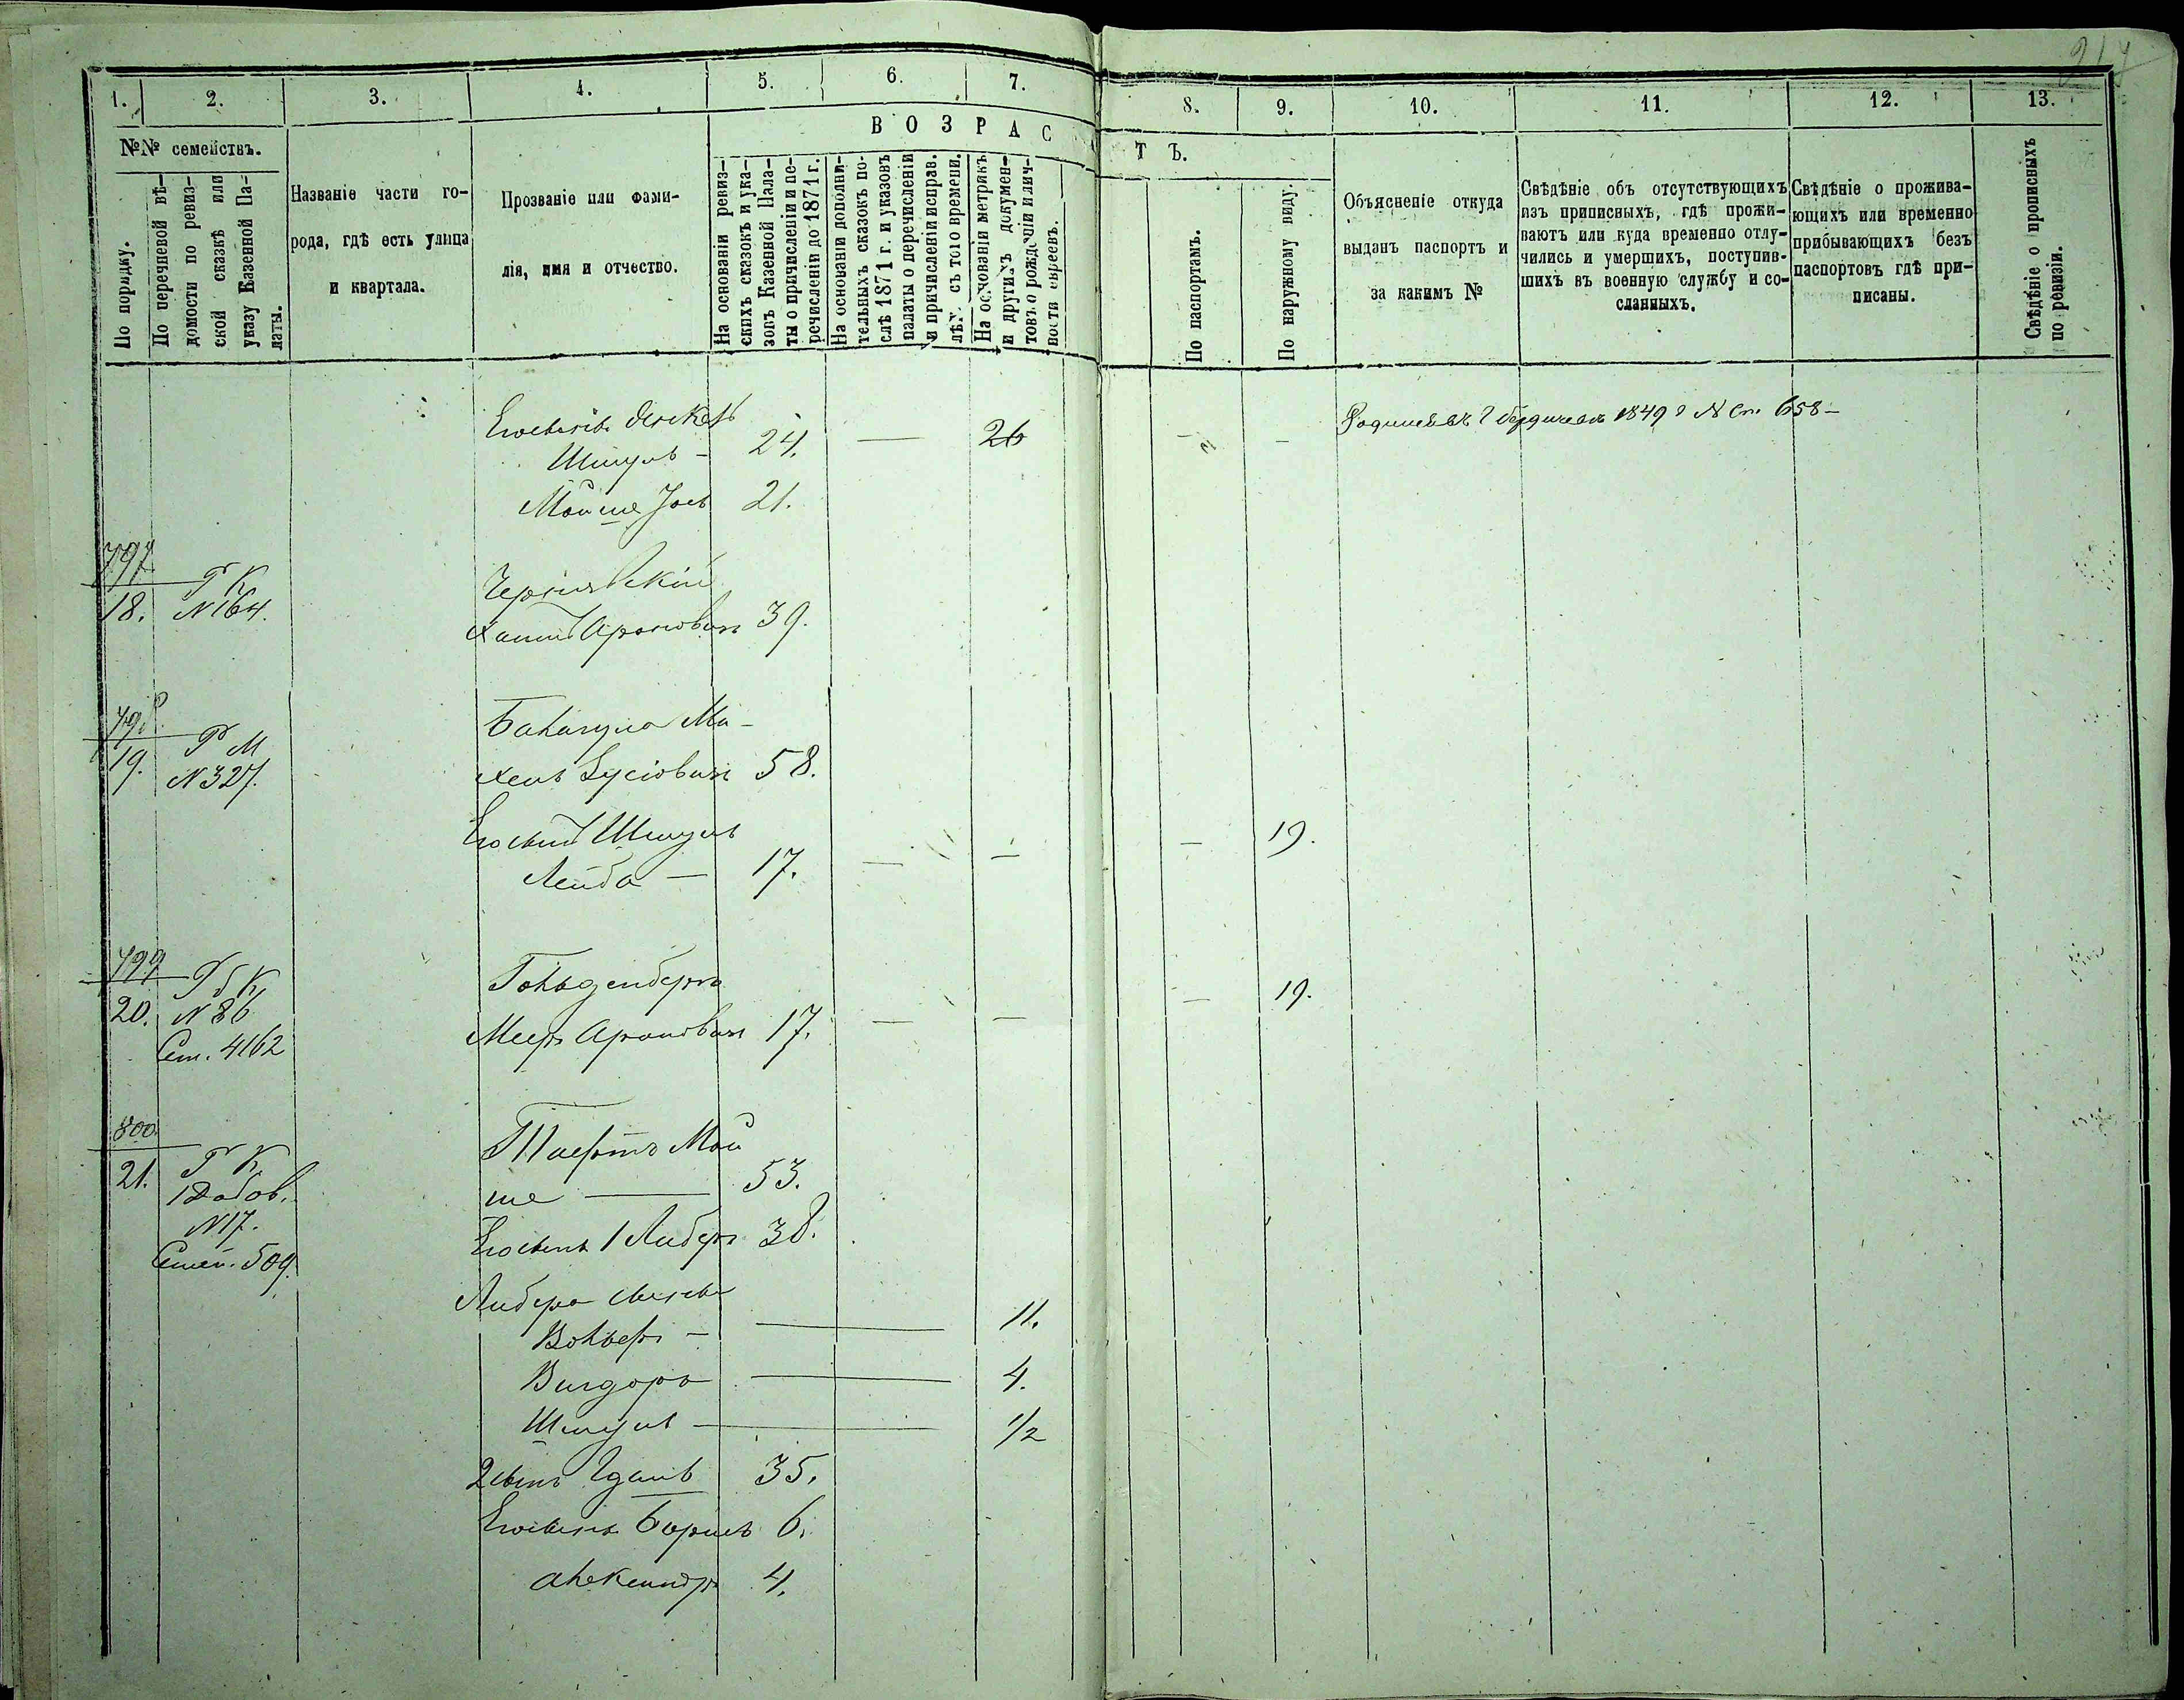 217
1. 2. 3. 4. 5. 6. 7. 8. 9. 10. 11. 12. 13.
№№ семействъ.
По порядку.
По перечневой вѣ-
домости по ревиз-
ской сказкѣ или
указу Казенной Па-
латы.
Названіе части го-
рода, гдѣ есть улица
и квартала.
Прозваніе или фами-
лія, имя и отчество.
ВОЗРАС
ТЪ.
На основаніи ревиз-
скихъ сказокъ и ука-
зовъ Казенной Пала-
ты о причисленіи и пе-
речисленіи до 1871 г.
На основаніи дополни-
тельныхъ сказокъ по-
слѣ 1871 г. и указовъ
палаты о перечисленіи
и причисленіи исправ.
лѣт. съ того времени.
На основаніи метрикъ
и другихъ докумен-
товъ о рожденіи и лич-
ности евреевъ.
По паспортамъ.
По наружному виду.
Объясненіе откуда
выданъ паспортъ и
за какимъ №
Свѣдѣніе объ отсутствующихъ
изъ приписныхъ, гдѣ прожи-
ваютъ или куда временно отлу-
чились и умершихъ, поступив-
шихъ въ военную службу и со-
сланныхъ.
Свѣдѣніе о прожива-
ющихъ или временно
прибывающихъ безъ
паспортовъ гдѣ при-
писаны.
Свѣдѣніе о прописныхъ
по ревизіи.
Шмуль – 24. — 26 – –
1849 658 –
Мойше Іось 21.
797
18. Р К
N 164.
Чернявскій
Хаимъ Ароновичъ 39.
798
19. Р М
N 327.
Ми-
хель 58.
Его сынъ Шмуль
Лейба – 17. — — – 19.
799
20. Р б К
N 86
Сем. 4162
Гольденбергъ
Мееръ Ароновичъ 17. — — – 19.
800
21. Р К
1 Добов.
N 17.
Семей. 509.
Мой
ше — 53.
Его сынъ 1 Либеръ 38.
Либера сынъ
Вольфъ – — 11.
Вигдоръ — 4.
Шмуль — 1/2
2 сынъ 35.
Его сынъ Борисъ 6.
Александръ 4.